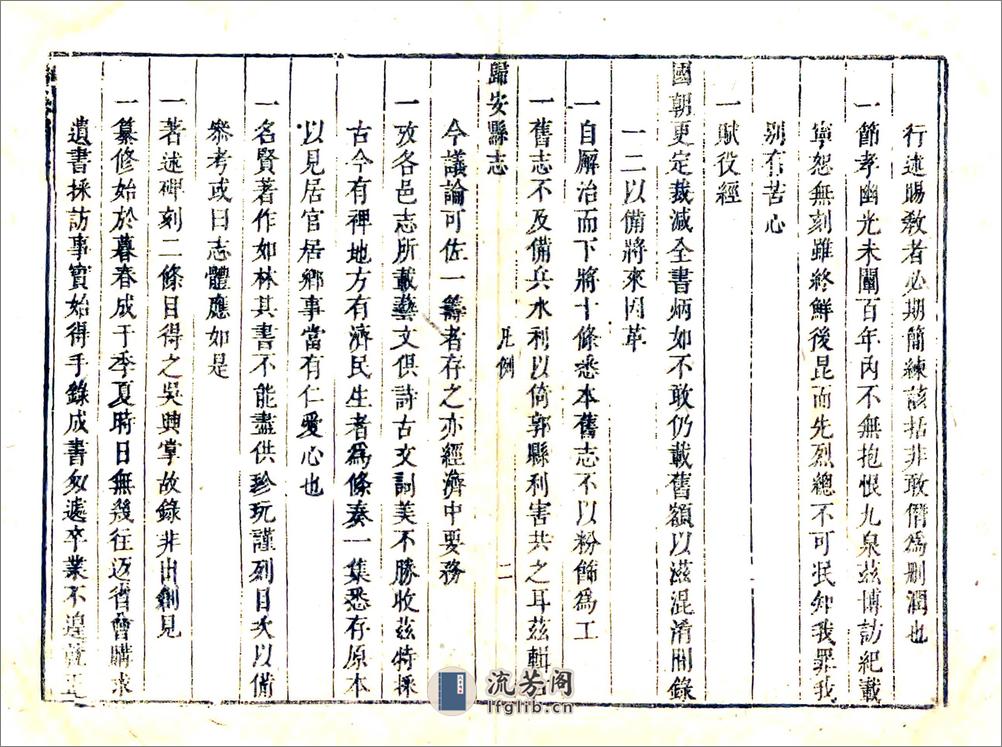 行述賜教者必期簡練該括非敢僭為刪潤也
一節孝幽光未闡百年內不無抱恨九泉茲博訪紀載
寧恕無刻雖終鮮後昆而先烈總不可泯知我罪我
別有苦心
一賦役經
國朝更定裁減全書炳如不敢仍載舊額以滋混淆間錄
一二以備將來因革
一自廨治而下將十條悉本舊志不以粉飾為工
一舊志不及備兵水利以倚郭縣利害共之耳茲輯
歸安縣志 凡例 二
今議論可佐一籌者存之亦經濟中要務
一攷各邑志所載藝文俱詩古文詞美不勝收茲特採
古今有裨地方有濟民生者為條奏一集悉存原本
以見居官居鄉事當有仁愛心也
一名賢著作如林其書不能盡供珍玩謹列目次以備
叅考或曰志體應如是
一著述碑刻二條目得之吳興掌故錄非出創見
一纂修始於暮春成于季夏時日無幾往返省會購求
遺書採訪事實始得手錄成書匆遽卒業不遑
流芳阁
lfglib.cn